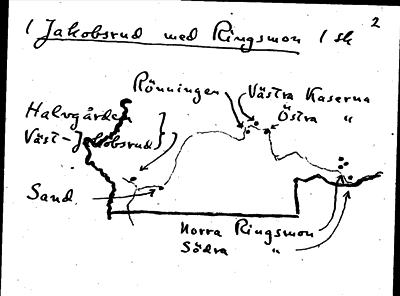 2
1 Jakobsrud med Ringsmon 1 sk
Rönningen
Västra Kaserna
Östra "
Halvgården
Väst-Jakobsrud
Sand
Norra Ringsmon
Södra "